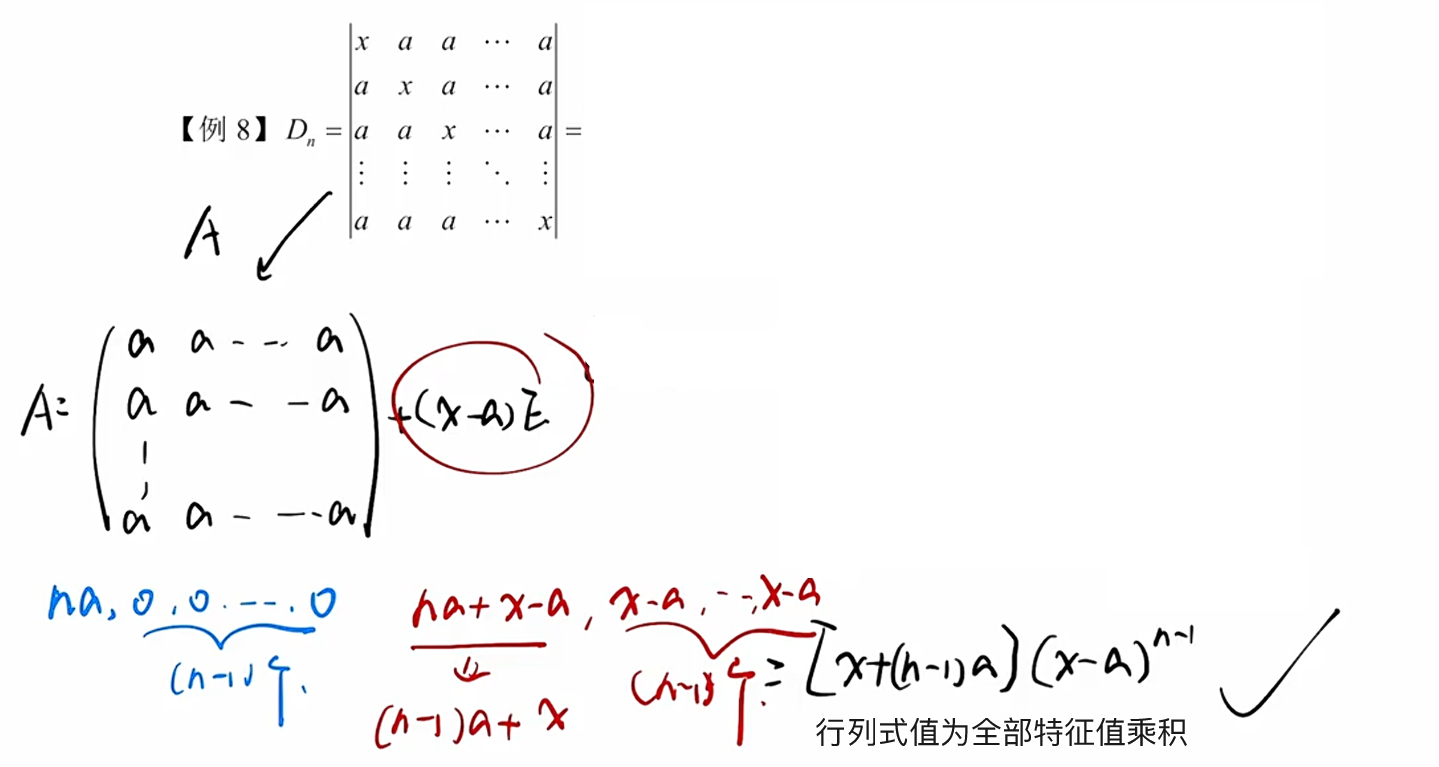 【例 8】 Dₙ = | x a a ⋯ a |
| a x a ⋯ a |
| a a x ⋯ a | =
| ⋮ ⋮ ⋮ ⋱ ⋮ |
| a a a ⋯ x |
A
A = ( a a - - a
a a - - a
a a - - a ) + (x-a)E
na, 0, 0, ---, 0
(n-1)个.
na+x-a, x-a, --, x-a
⇓
(n-1)a+x
(n-1)个.
= [x+(n-1)a](x-a)ⁿ⁻¹
行列式值为全部特征值乘积